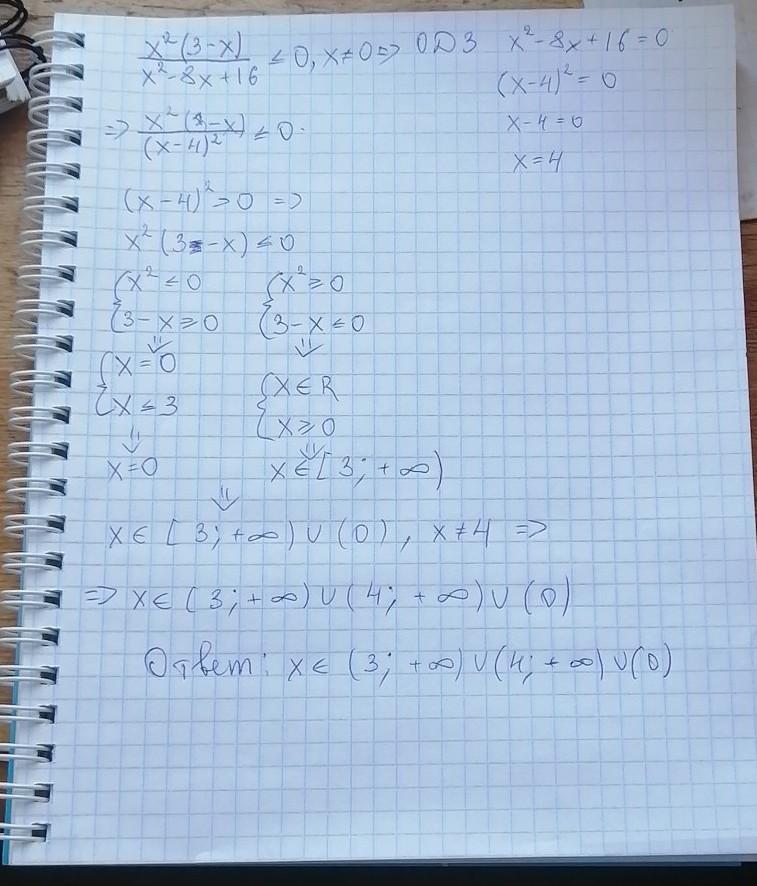 x²(3-x) / x²-8x+16 ≤ 0, x≠0 => ОДЗ x²-8x+16=0
(x-4)²=0
=> x²(3-x) / (x-4)² ≤ 0.
x-4=0
x=4
(x-4)²>0 =>
x²(3-x)≤0
{x²≤0 {x²≥0
{3-x≥0 {3-x≤0
⇓ ⇓
{x=0 {x∈R
{x≤3 {x≥0
⇓ ⇓
x=0 x∈[3;+∞)
⇓
x∈[3;+∞)∪(0), x≠4 =>
=> x∈(3;+∞)∪(4;+∞)∪(0)
Ответ: x∈(3;+∞)∪(4;+∞)∪(0)